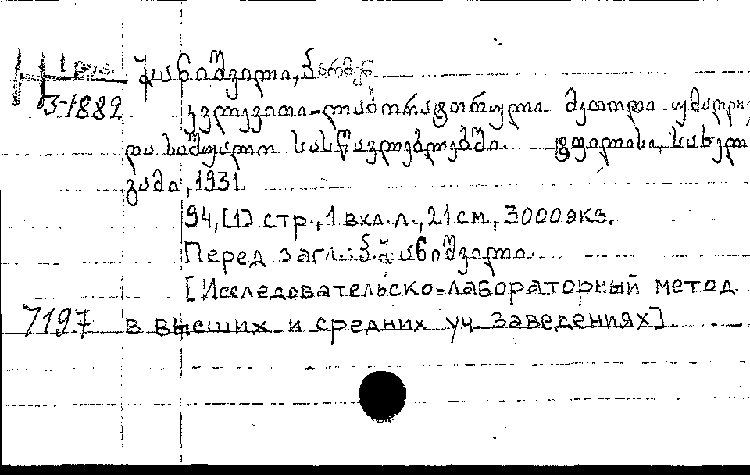 ჯანიშვილი,
3-1882
კვლევითი-ლაბორატორული მეთოდი უმაღლეს
და საშუალო სასწავლებლებში. ტფილისი, სახელ
გამი, 1931
94,[1] стр., 1 вкл.л., 21 см, 3000 экз.
Перед загл.: ჯანიშვილი.
[Исследовательско-лабораторный метод
7197 в высших и средних уч. заведениях]